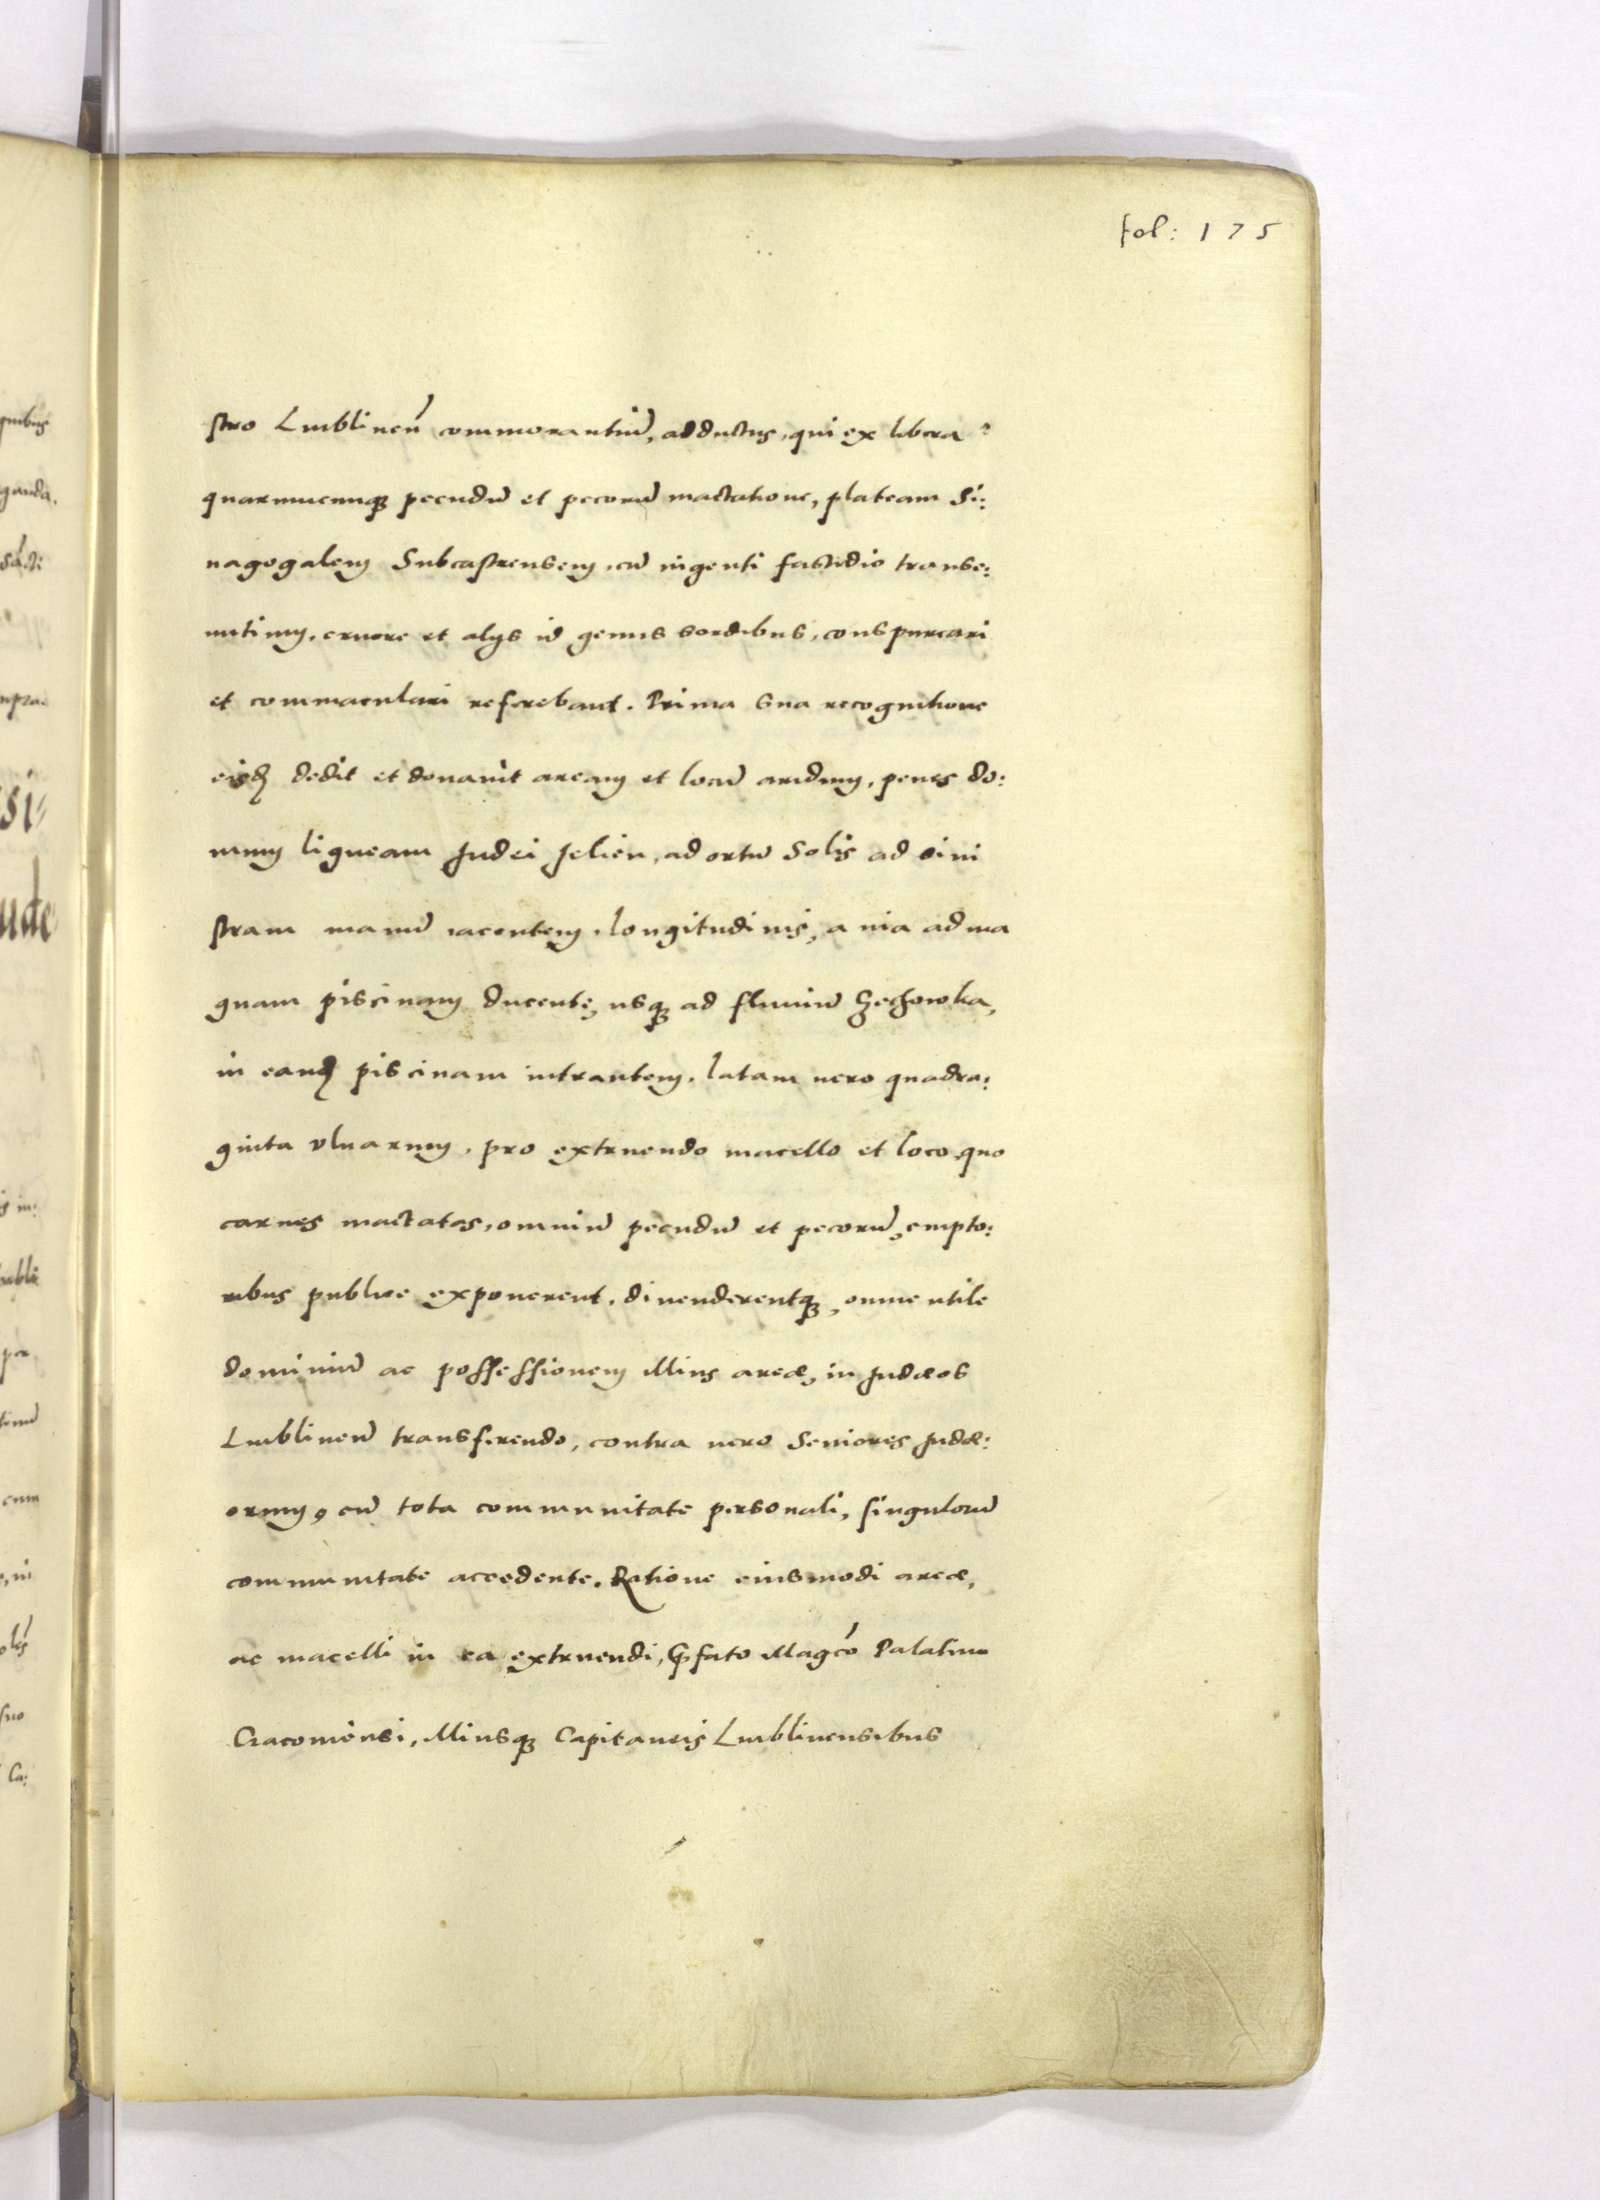 fol: 175
stro Lublineñ commorantiũ, adductus, qui ex libera
quarumcunqȝ pecudũ et pecorũ mactatione, plateam Si:
nagogalem Subcastrensem, cũ ingenti fastidio transe:
untium, cruore et alys id genus sordibus, conspurcari
et commaculari referebant. Prima sua recognitione
eisdꝫ dedit et donauit aream et locũ aridum, penes do:
mum ligneam Judei Jelien, ad ortũ Solis ad sini
stram manũ iacentem, longitudinis, a via ad ma
gnam piscinam ducente, usqȝ ad fluuiũ Czechowka,
in eandꝫ piscinam intrantem, latam uero quadra:
ginta vlnarum, pro extruendo macello et loco, quo
carnes mactatas, omniũ pecudũ et pecorũ, empto:
ribus publice exponerent, diuenderentqȝ, omne utile
dominiũ ac possessionem illius areæ, in Judæos
Lublineñ transferendo, contra uero Seniores Judæ:
orum, cũ tota communitate personali, singulorũ
communitate accedente. Ratione eiusmodi areæ,
ac macelli in ea extruendi, Pfato Magco Palatino
Cracouiensi, illiusqȝ Capitaneis Lublinensibus